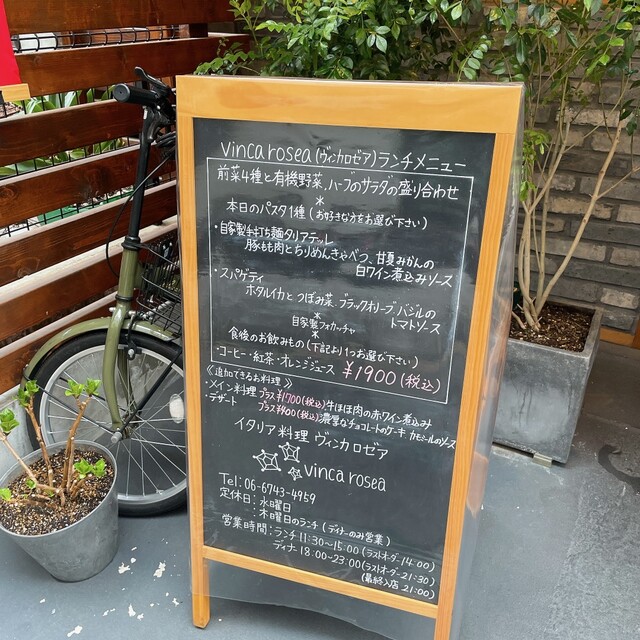 vinca rosea (ヴィンカロゼア) ランチメニュー
前菜4種と有機野菜、ハーブのサラダの盛り合わせ
*
本日のパスタ1種 (お好きな方をお選び下さい)
・自家製手打ち麺タリアテッレ
豚もも肉とちりめんきゃべつ、甘夏みかんの
白ワイン煮込みソース
・スパゲティ
ホタルイカと つぼみ菜、ブラックオリーブ、バジルの
トマトソース
*
自家製フォカッチャ
*
食後のお飲みもの (下記より1つお選び下さい)
・コーヒー・紅茶・オレンジジュース ¥1900 (税込)
《追加できるお料理》
・メイン料理 プラス¥1700(税込) 牛ほほ肉の赤ワイン煮込み
・デザート プラス¥900(税込) 濃厚なチョコレートのケーキ カモミールのソース
イタリア料理 ヴィンカロゼア
vinca rosea
Tel: 06-6743-4959
定休日: 水曜日
: 木曜日のランチ (ディナーのみ営業)
営業時間: ランチ 11:30~15:00 (ラストオーダー 14:00)
ディナ 18:00~23:00 (ラストオーダー 21:30)
(最終入店 21:00)